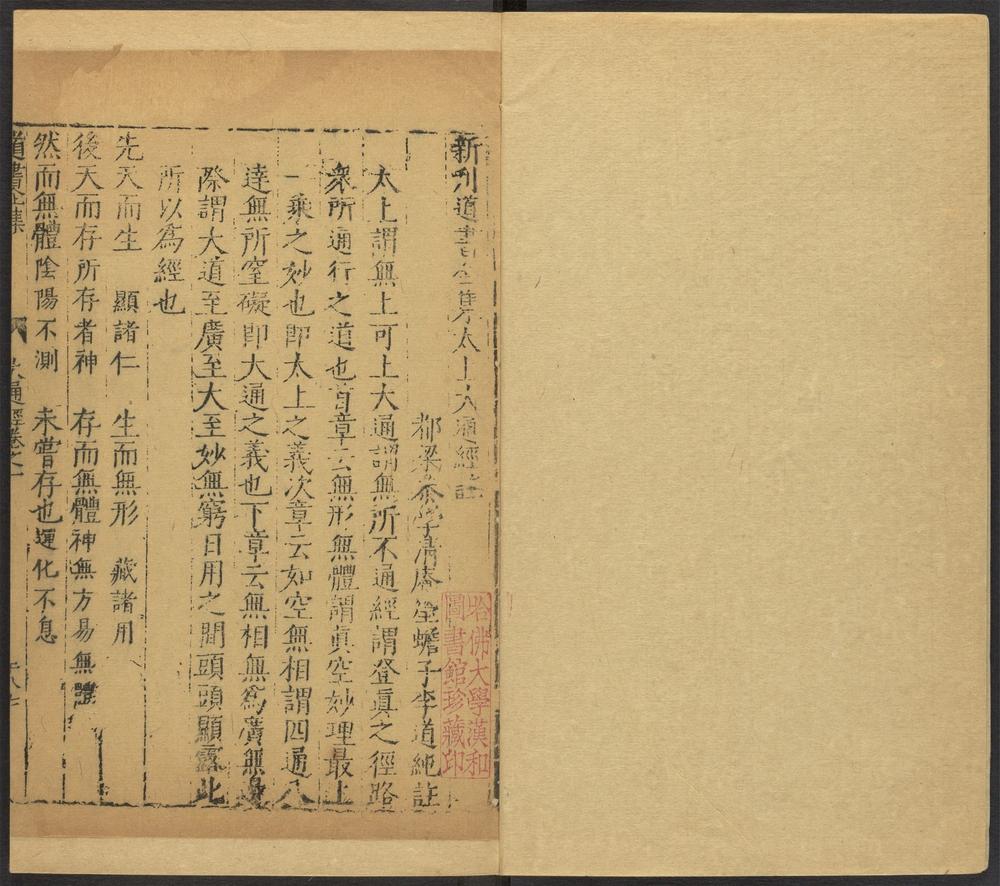 新刋道書全集太上大通經註
都梁參學清庵瑩蟾子李道純註
太上謂無上可上大通謂無所不通經謂登眞之徑路
衆所通行之道也首章云無形無體謂眞空妙理最上
一乘之妙也卽太上之義次章云如空無相謂四通八
達無所窒礙卽大通之義也下章云無相無爲廣無邊
際謂大道至廣至大至妙無窮日用之間頭頭顯露此
所以爲經也
先天而生 顯諸仁 生而無形 藏諸用
後天而存所存者神 存而無體神無方易無體
然而無體陰陽不測 未嘗存也運化不息
道書全集 大通經卷之一
哈佛大學漢和
圖書館珍藏印